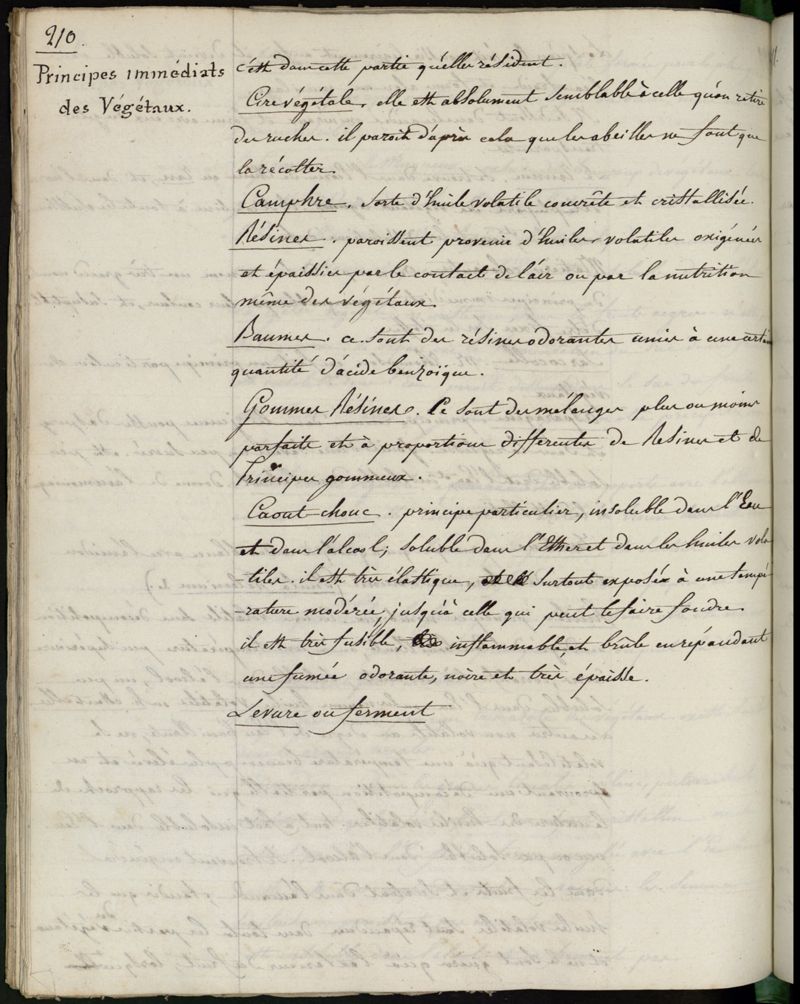 210.
Principes immédiats
des Végétaux.
c'est dans cette partie qu'elles résident.
Cire végétale, elle est absolument semblable à celle qu'on retire
des ruches. il paroit d'après cela que les abeilles ne font que
la récolter.
Camphre. sorte d'huile volatile concrête et cristallisée.
Résines. paroissent provenir d'huiles volatiles oxigénées
et épaissies par le contact de l'air ou par la nutrition
même des végétaux.
Baumes. ce sont des résines odorantes unies à une certaine
quantité d'acide benzoïque.
Gommes Résines. Ce sont des mélanges plus ou moins
parfaits et à proportions differentes de Resines et de
Principes gommeux.
Caout-chouc. principe particulier, insoluble dans l'Eau
et dans l'alcool; soluble dans l'Ether et dans les huiles vola
tiles. il est très élastique, surtout exposée à une tempé
-rature modérée, jusqu'à celle qui peut le faire fondre.
il est très fusible, inflammable, et brûle en répandant
une fumée odorante, noire et très épaisse.
Levure ou ferment